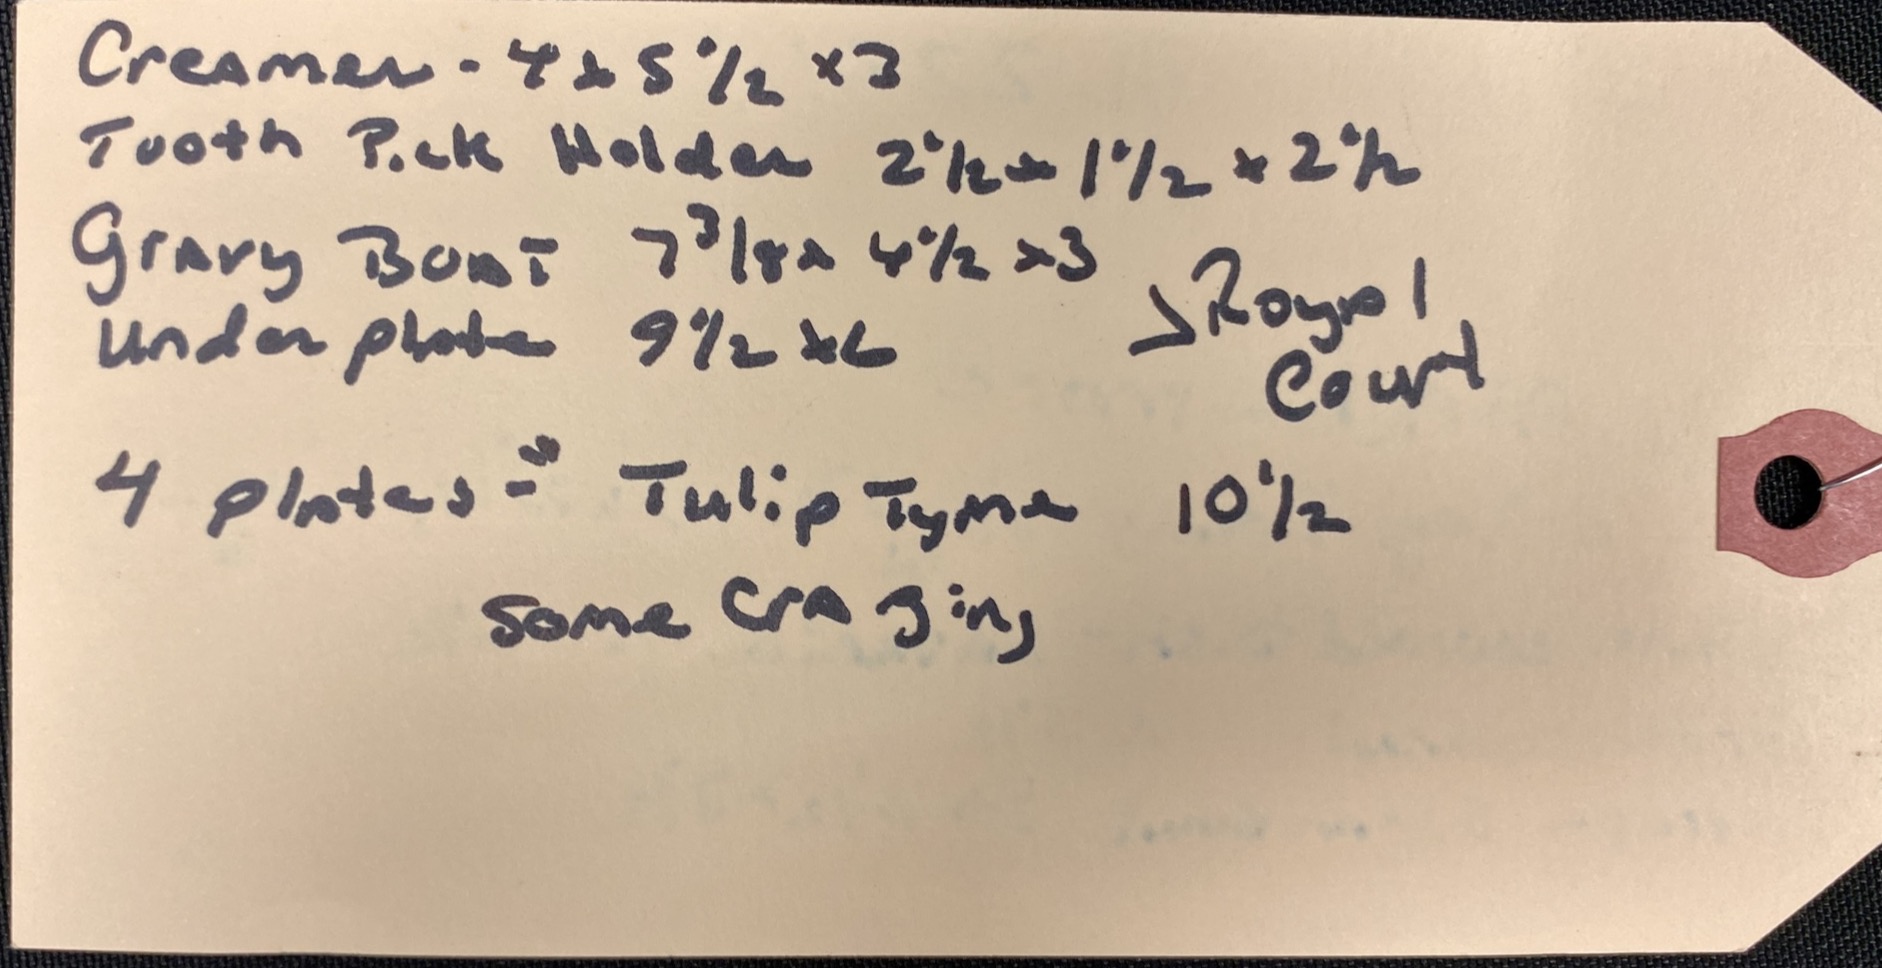 Creamer - 4 x 5 1/2 x 3
Tooth Pick Holder 2 1/2 x 1 1/2 x 2 1/2
Gravy Boat 7 3/4 x 4 1/2 x 3
Under plate 9 1/2 x 6
Royal
Court
4 plates - Tulip Tyme 10 1/2
Some Crazing